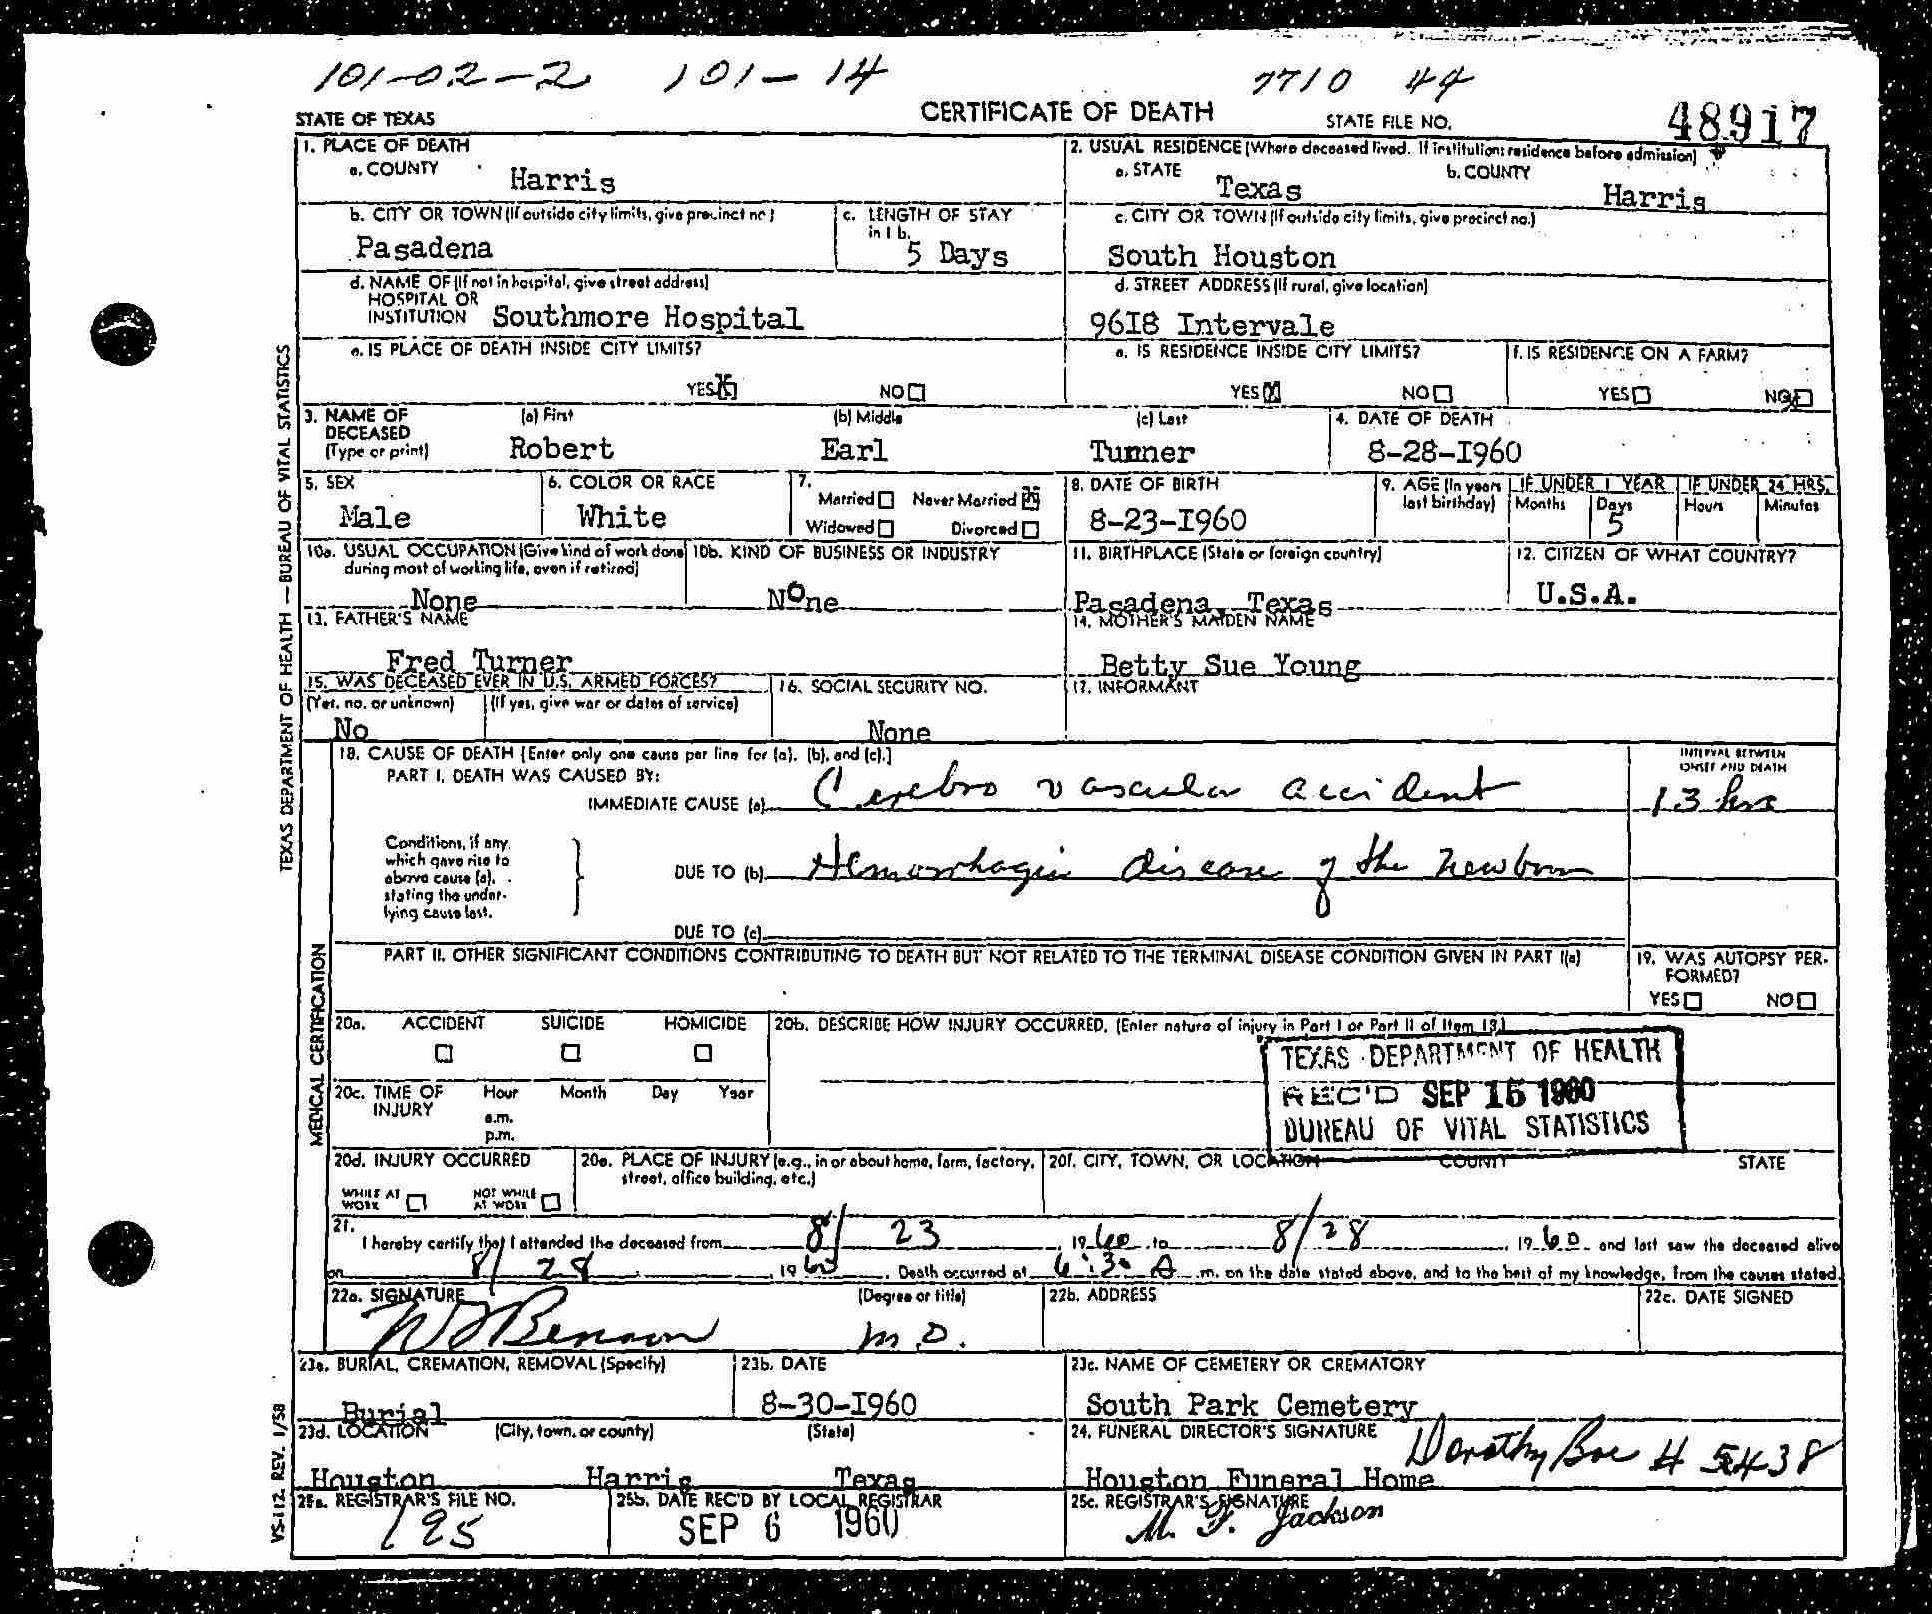 101-02-2 101-14 7710 44
STATE OF TEXAS CERTIFICATE OF DEATH STATE FILE NO. 48917
1. PLACE OF DEATH
a. COUNTY Harris
2. USUAL RESIDENCE (Where deceased lived. If institution: residence before admission)
a. STATE Texas b. COUNTY Harris
b. CITY OR TOWN (If outside city limits, give precinct no.) Pasadena
c. LENGTH OF STAY in 1 b. 5 Days
c. CITY OR TOWN (If outside city limits, give precinct no.)
South Houston
d. NAME OF (If not in hospital, give street address)
HOSPITAL OR
INSTITUTION Southmore Hospital
d. STREET ADDRESS (If rural, give location)
96I8 Intervale
e. IS PLACE OF DEATH INSIDE CITY LIMITS?
YES X NO
e. IS RESIDENCE INSIDE CITY LIMITS?
YES X NO
f. IS RESIDENCE ON A FARM?
YES NO X
3. NAME OF DECEASED (Type or print)
(a) First Robert
(b) Middle Earl
(c) Last Turner
4. DATE OF DEATH
8-28-I960
5. SEX
Male
6. COLOR OR RACE
White
7. Married Never Married X
Widowed Divorced
8. DATE OF BIRTH
8-23-I960
9. AGE (In years last birthday)
IF UNDER 1 YEAR
Months Days 5
IF UNDER 24 HRS.
Hours Minutes
10a. USUAL OCCUPATION (Give kind of work done during most of working life, even if retired)
None
10b. KIND OF BUSINESS OR INDUSTRY
NOne
11. BIRTHPLACE (State or foreign country)
Pasadena, Texas
12. CITIZEN OF WHAT COUNTRY?
U.S.A.
13. FATHER'S NAME
Fred Turner
14. MOTHER'S MAIDEN NAME
Betty Sue Young
15. WAS DECEASED EVER IN U.S. ARMED FORCES?
(Yes, no, or unknown) (If yes, give war or dates of service)
No
16. SOCIAL SECURITY NO.
None
17. INFORMANT
18. CAUSE OF DEATH [Enter only one cause per line for (a), (b), and (c).]
PART I. DEATH WAS CAUSED BY:
IMMEDIATE CAUSE (a) Cerebro vascular accident
INTERVAL BETWEEN ONSET AND DEATH
13 hrs
Conditions, if any, which gave rise to above cause (a), stating the underlying cause last.
DUE TO (b) Hemorrhagic disease of the newborn
DUE TO (c)
PART II. OTHER SIGNIFICANT CONDITIONS CONTRIBUTING TO DEATH BUT NOT RELATED TO THE TERMINAL DISEASE CONDITION GIVEN IN PART I(a)
19. WAS AUTOPSY PERFORMED?
YES NO
20a. ACCIDENT SUICIDE HOMICIDE
20b. DESCRIBE HOW INJURY OCCURRED. (Enter nature of injury in Part I or Part II of Item 18)
TEXAS DEPARTMENT OF HEALTH
REC'D SEP 15 1960
BUREAU OF VITAL STATISTICS
20c. TIME OF INJURY Hour Month Day Year
a.m.
p.m.
20d. INJURY OCCURRED
WHILE AT WORK NOT WHILE AT WORK
20e. PLACE OF INJURY (e.g., in or about home, farm, factory, street, office building, etc.)
20f. CITY, TOWN, OR LOCATION COUNTY STATE
21. I hereby certify that I attended the deceased from 8/23, 1960 to 8/28, 1960 and last saw the deceased alive
on 8/28, 1960. Death occurred at 6:30 A m. on the date stated above, and to the best of my knowledge, from the causes stated.
22a. SIGNATURE (Degree or title)
Benson M.D.
22b. ADDRESS
22c. DATE SIGNED
23a. BURIAL, CREMATION, REMOVAL (Specify)
Burial
23b. DATE
8-30-I960
23c. NAME OF CEMETERY OR CREMATORY
South Park Cemetery
23d. LOCATION (City, town, or county) (State)
Houston Harris Texas
24. FUNERAL DIRECTOR'S SIGNATURE
Dorothy Boe # 5438
Houston Funeral Home
25a. REGISTRAR'S FILE NO.
195
25b. DATE REC'D BY LOCAL REGISTRAR
SEP 6 1960
25c. REGISTRAR'S SIGNATURE
M. F. Jackson
TEXAS DEPARTMENT OF HEALTH — BUREAU OF VITAL STATISTICS
MEDICAL CERTIFICATION
VS-112 REV. 1/58